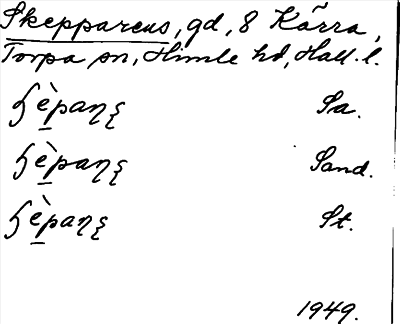 Skepparens, gd, 8 Kärra,
Torpa sn, Himle hd, Hall. l.
ɧè̠paɳʂ Sa.
ɧè̠paɳʂ Sand.
ɧè̠paɳʂ St.
1949.